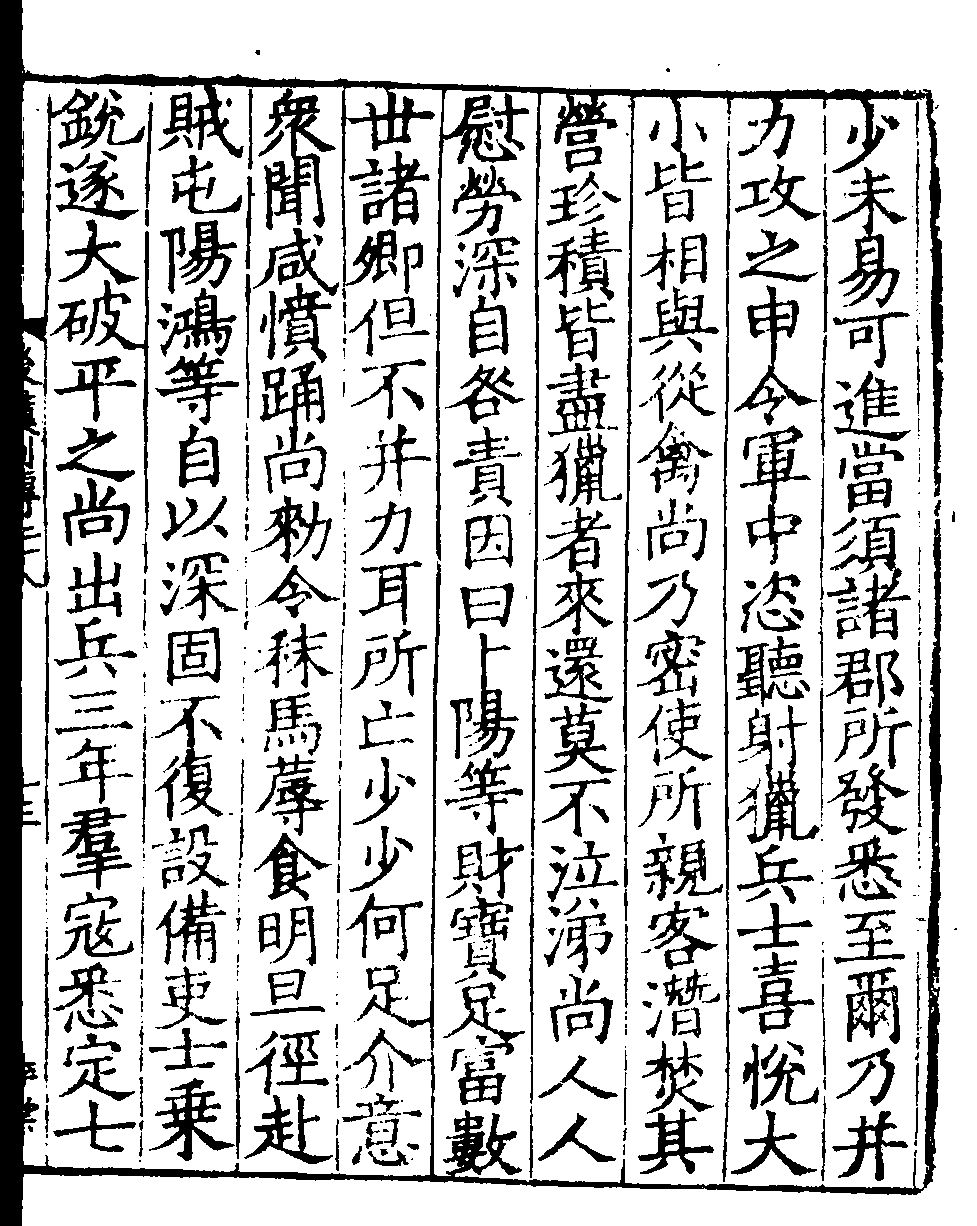 少未易可進當須諸郡所發悉至爾乃并
力攻之申令軍中恣聽射獵兵士喜悅大
小皆相與從禽尚乃密使所親客潛焚其
營珍積皆盡獵者來還莫不泣涕尚人人
慰勞深自咎責因曰卜陽等財寶足富數
丗諸卿但不并力耳所亡少少何足介意
衆聞咸憤踊尚勑令秣馬蓐食明旦徑赴
賊屯陽鴻等自以深固不復設備吏士乗
銳遂大破平之尚出兵三年羣寇悉定七